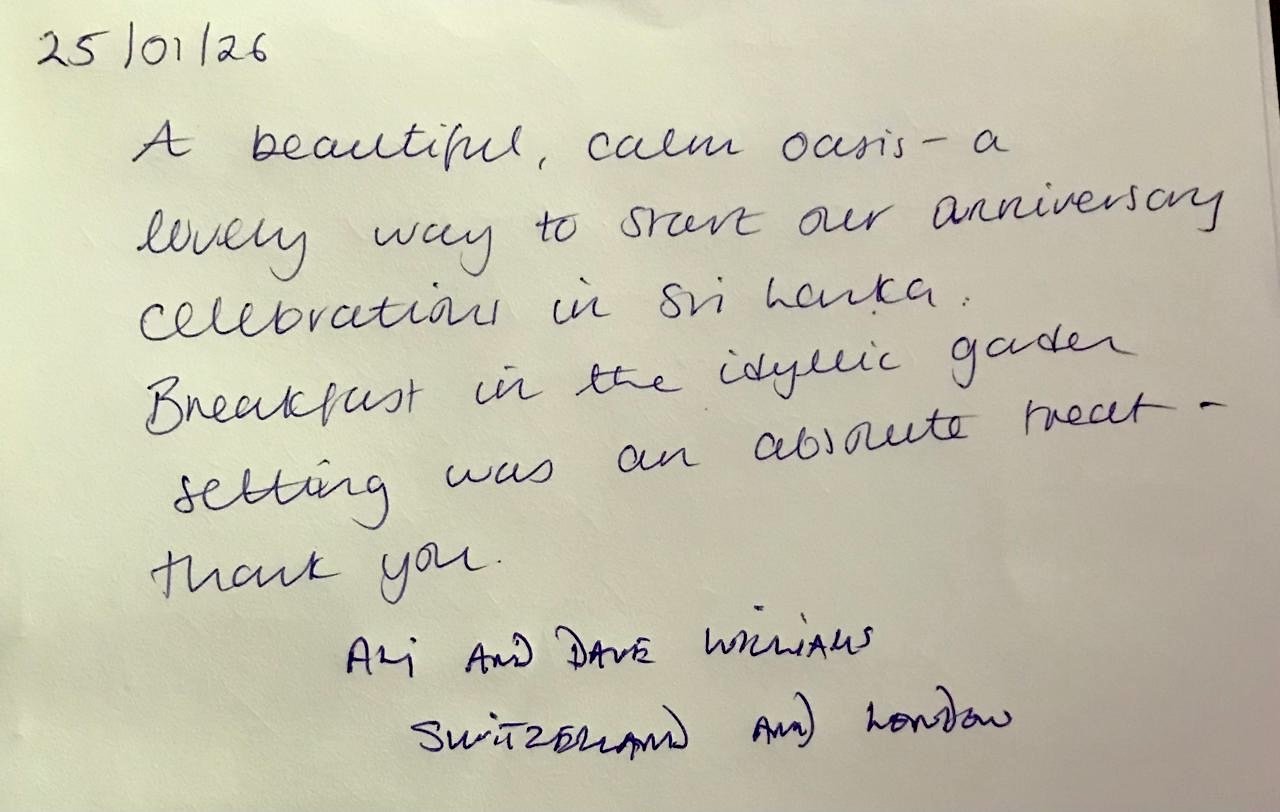 25/01/26
A beautiful, calm oasis - a
lovely way to start our anniversary
celebrations in Sri Lanka.
Breakfast in the idyllic garden
setting was an absolute treat -
thank you.
Ali AND DAVE WILLIAMS
SWITZERLAND AND LONDON